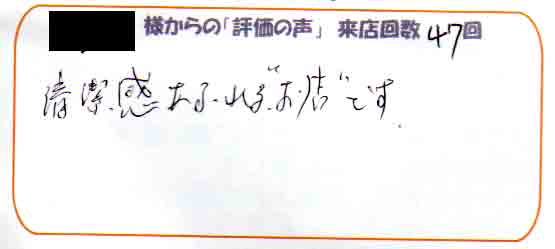 様からの「評価の声」 来店回数47回
清潔感あふれる"お店"です.